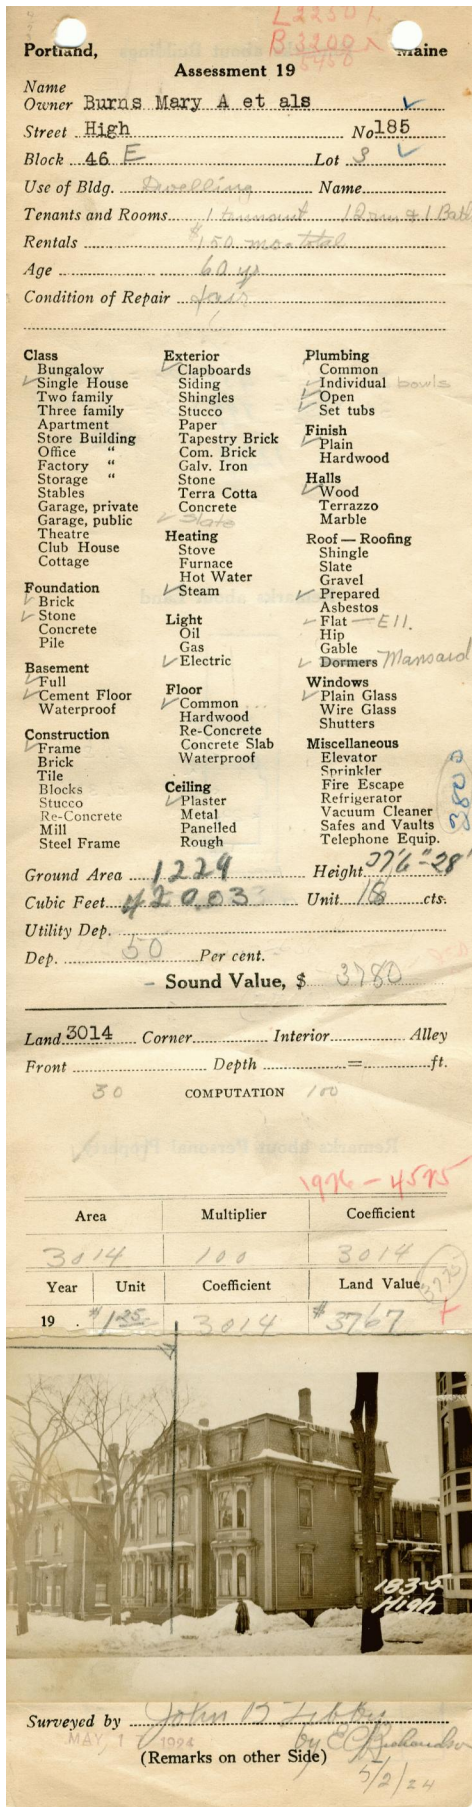 L 2250 +
B 3200 x
5450
Portland, Maine
Assessment 19
Name
Owner Burns Mary A et als
Street High No 185
Block 46 E Lot 3
Use of Bldg. Dwelling Name
Tenants and Rooms 1 tennant 12 rm & 1 Bath
Rentals $150 mo - total
Age 60 yr
Condition of Repair fair
Class
Bungalow
Single House
Two family
Three family
Apartment
Store Building
Office "
Factory "
Storage "
Stables
Garage, private
Garage, public
Theatre
Club House
Cottage
Foundation
Brick
Stone
Concrete
Pile
Basement
Full
Cement Floor
Waterproof
Construction
Frame
Brick
Tile
Blocks
Stucco
Re-Concrete
Mill
Steel Frame
Exterior
Clapboards
Siding
Shingles
Stucco
Paper
Tapestry Brick
Com. Brick
Galv. Iron
Stone
Terra Cotta
Concrete
Slate
Heating
Stove
Furnace
Hot Water
Steam
Light
Oil
Gas
Electric
Floor
Common
Hardwood
Re-Concrete
Concrete Slab
Waterproof
Ceiling
Plaster
Metal
Panelled
Rough
Plumbing
Common
Individual bowls
Open
Set tubs
Finish
Plain
Hardwood
Halls
Wood
Terrazzo
Marble
Roof — Roofing
Shingle
Slate
Gravel
Prepared
Asbestos
Flat — Ell.
Hip
Gable
Dormers Mansard
Windows
Plain Glass
Wire Glass
Shutters
Miscellaneous
Elevator
Sprinkler
Fire Escape
Refrigerator
Vacuum Cleaner
Safes and Vaults
Telephone Equip.
Ground Area 1229 Height 37'6"-28'
Cubic Feet 42003 Unit 18 cts.
Utility Dep.
Dep. 50 Per cent.
Sound Value, $ 3780
Land 3014 Corner Interior Alley
Front Depth = ft.
30 COMPUTATION 100
1926 - 4575
Area Multiplier Coefficient
3014 100 3014
Year Unit Coefficient Land Value
19 $1.25 3014 $3767
3775
183-5
High
Surveyed by John B Libby
by E C Richardson
MAY 1 1924
(Remarks on other Side)
5/2/24